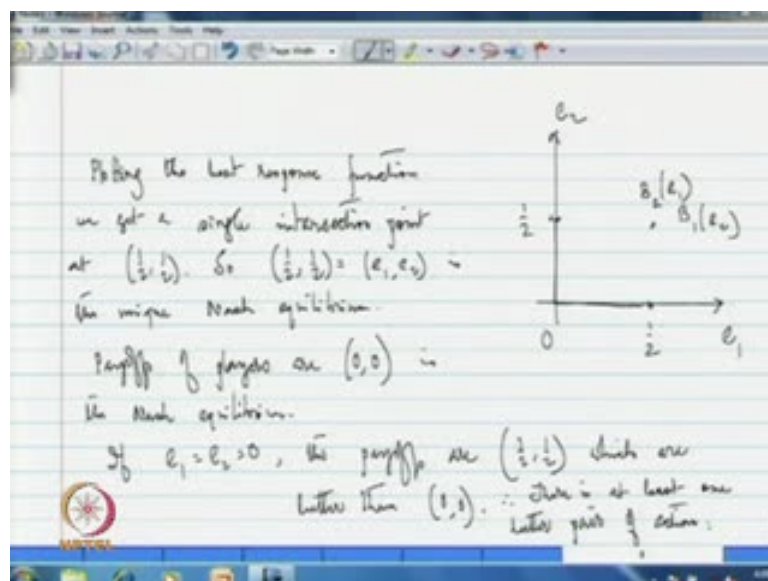 File Edit View Insert Actions Tools Help
Page Width
Plotting the best response function
we get a single intersection point
at (1/2, 1/2). So (1/2, 1/2) = (e1, e2) is
the unique Nash equilibrium.
Payoffs of players are (0,0) in
the Nash equilibrium.
If e1 = e2 = 0, the payoffs are (1/2, 1/2) which are
better than (0,0). ∴ there is at least one
better pair of action.
e2
B2(e1)
B1(e2)
1/2
0
1/2
e1
NPTEL